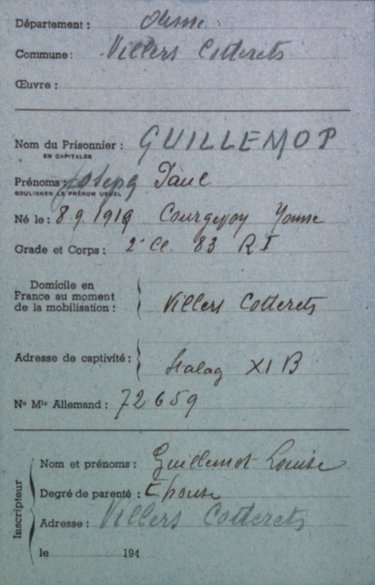 Département : Aisne
Commune : Villers Cotterets
Œuvre :
Nom du Prisonnier : GUILLEMOP
EN CAPITALES
Prénoms : Joseph Paul
SOULIGNER LE PRÉNOM USUEL
Né le : 8.9.1919 Yonne
Grade et Corps : 2e Cl. 83 R I
Domicile en
France au moment
de la mobilisation : Villers Cotterets
Adresse de captivité : Stalag XI B
No Mle Allemand : 72659
Inscripteur
Nom et prénoms : Guillemot Louise
Degré de parenté : Epouse
Adresse : Villers Cotterets
le 194